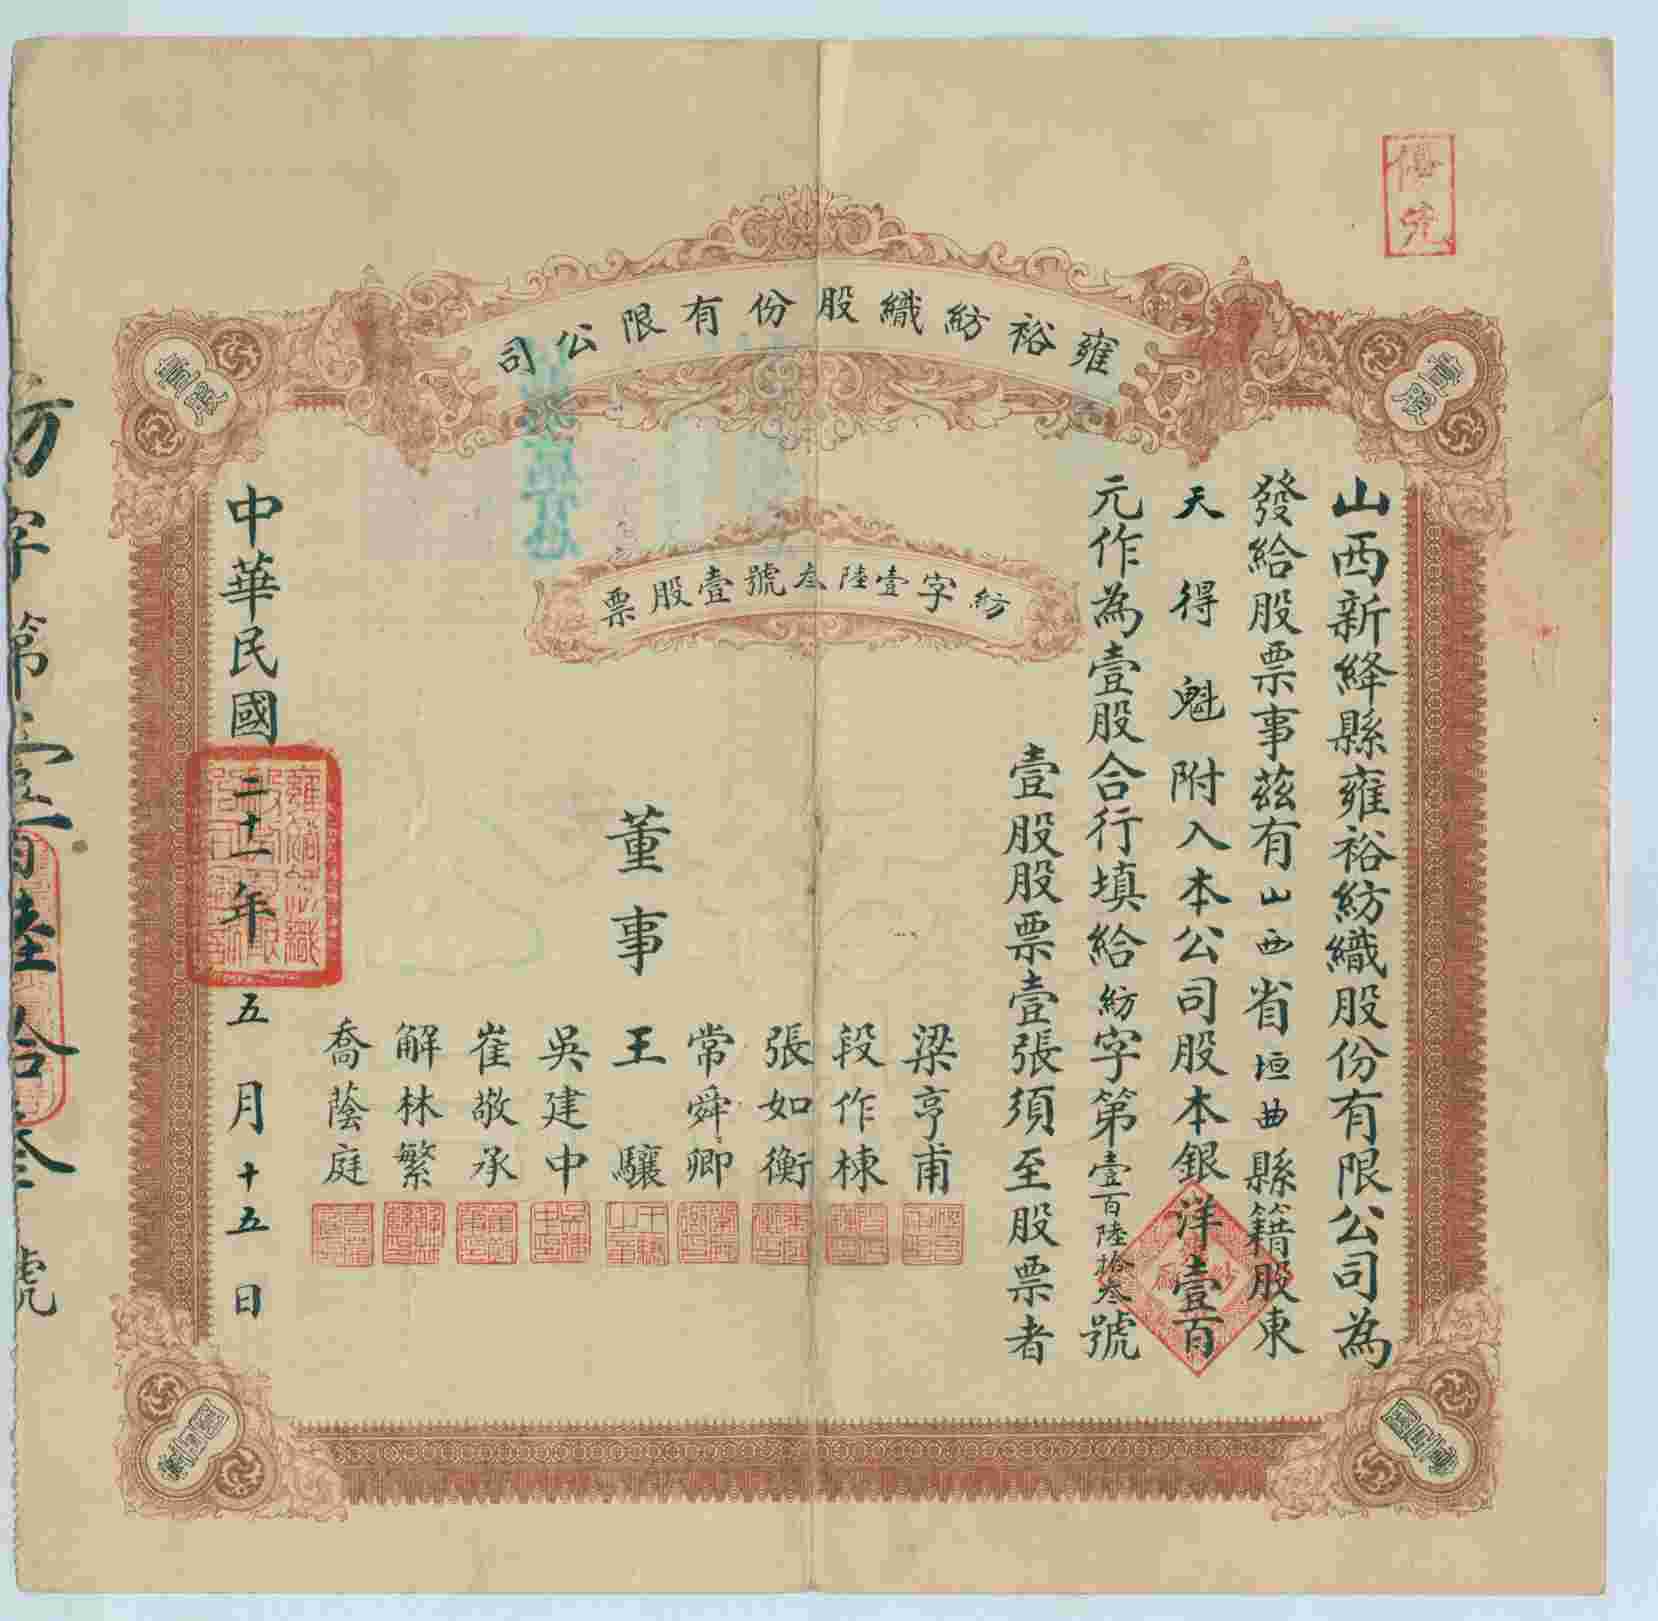 雍裕紡織股份有限公司
紡字壹陸叁號壹股票
山西新絳縣雍裕紡織股份有限公司為
發給股票事茲有山西省垣曲縣籍股東
天得魁附入本公司股本銀洋壹百
元作為壹股合行填給紡字第壹百陸拾叁號
壹股股票壹張須至股票者
董事
梁亨甫
段作棟
張如衡
常舜卿
王驤
吳建中
崔敬承
解林繁
喬蔭庭
中華民國二十一年五月十五日
紡字第壹百陸拾叁號